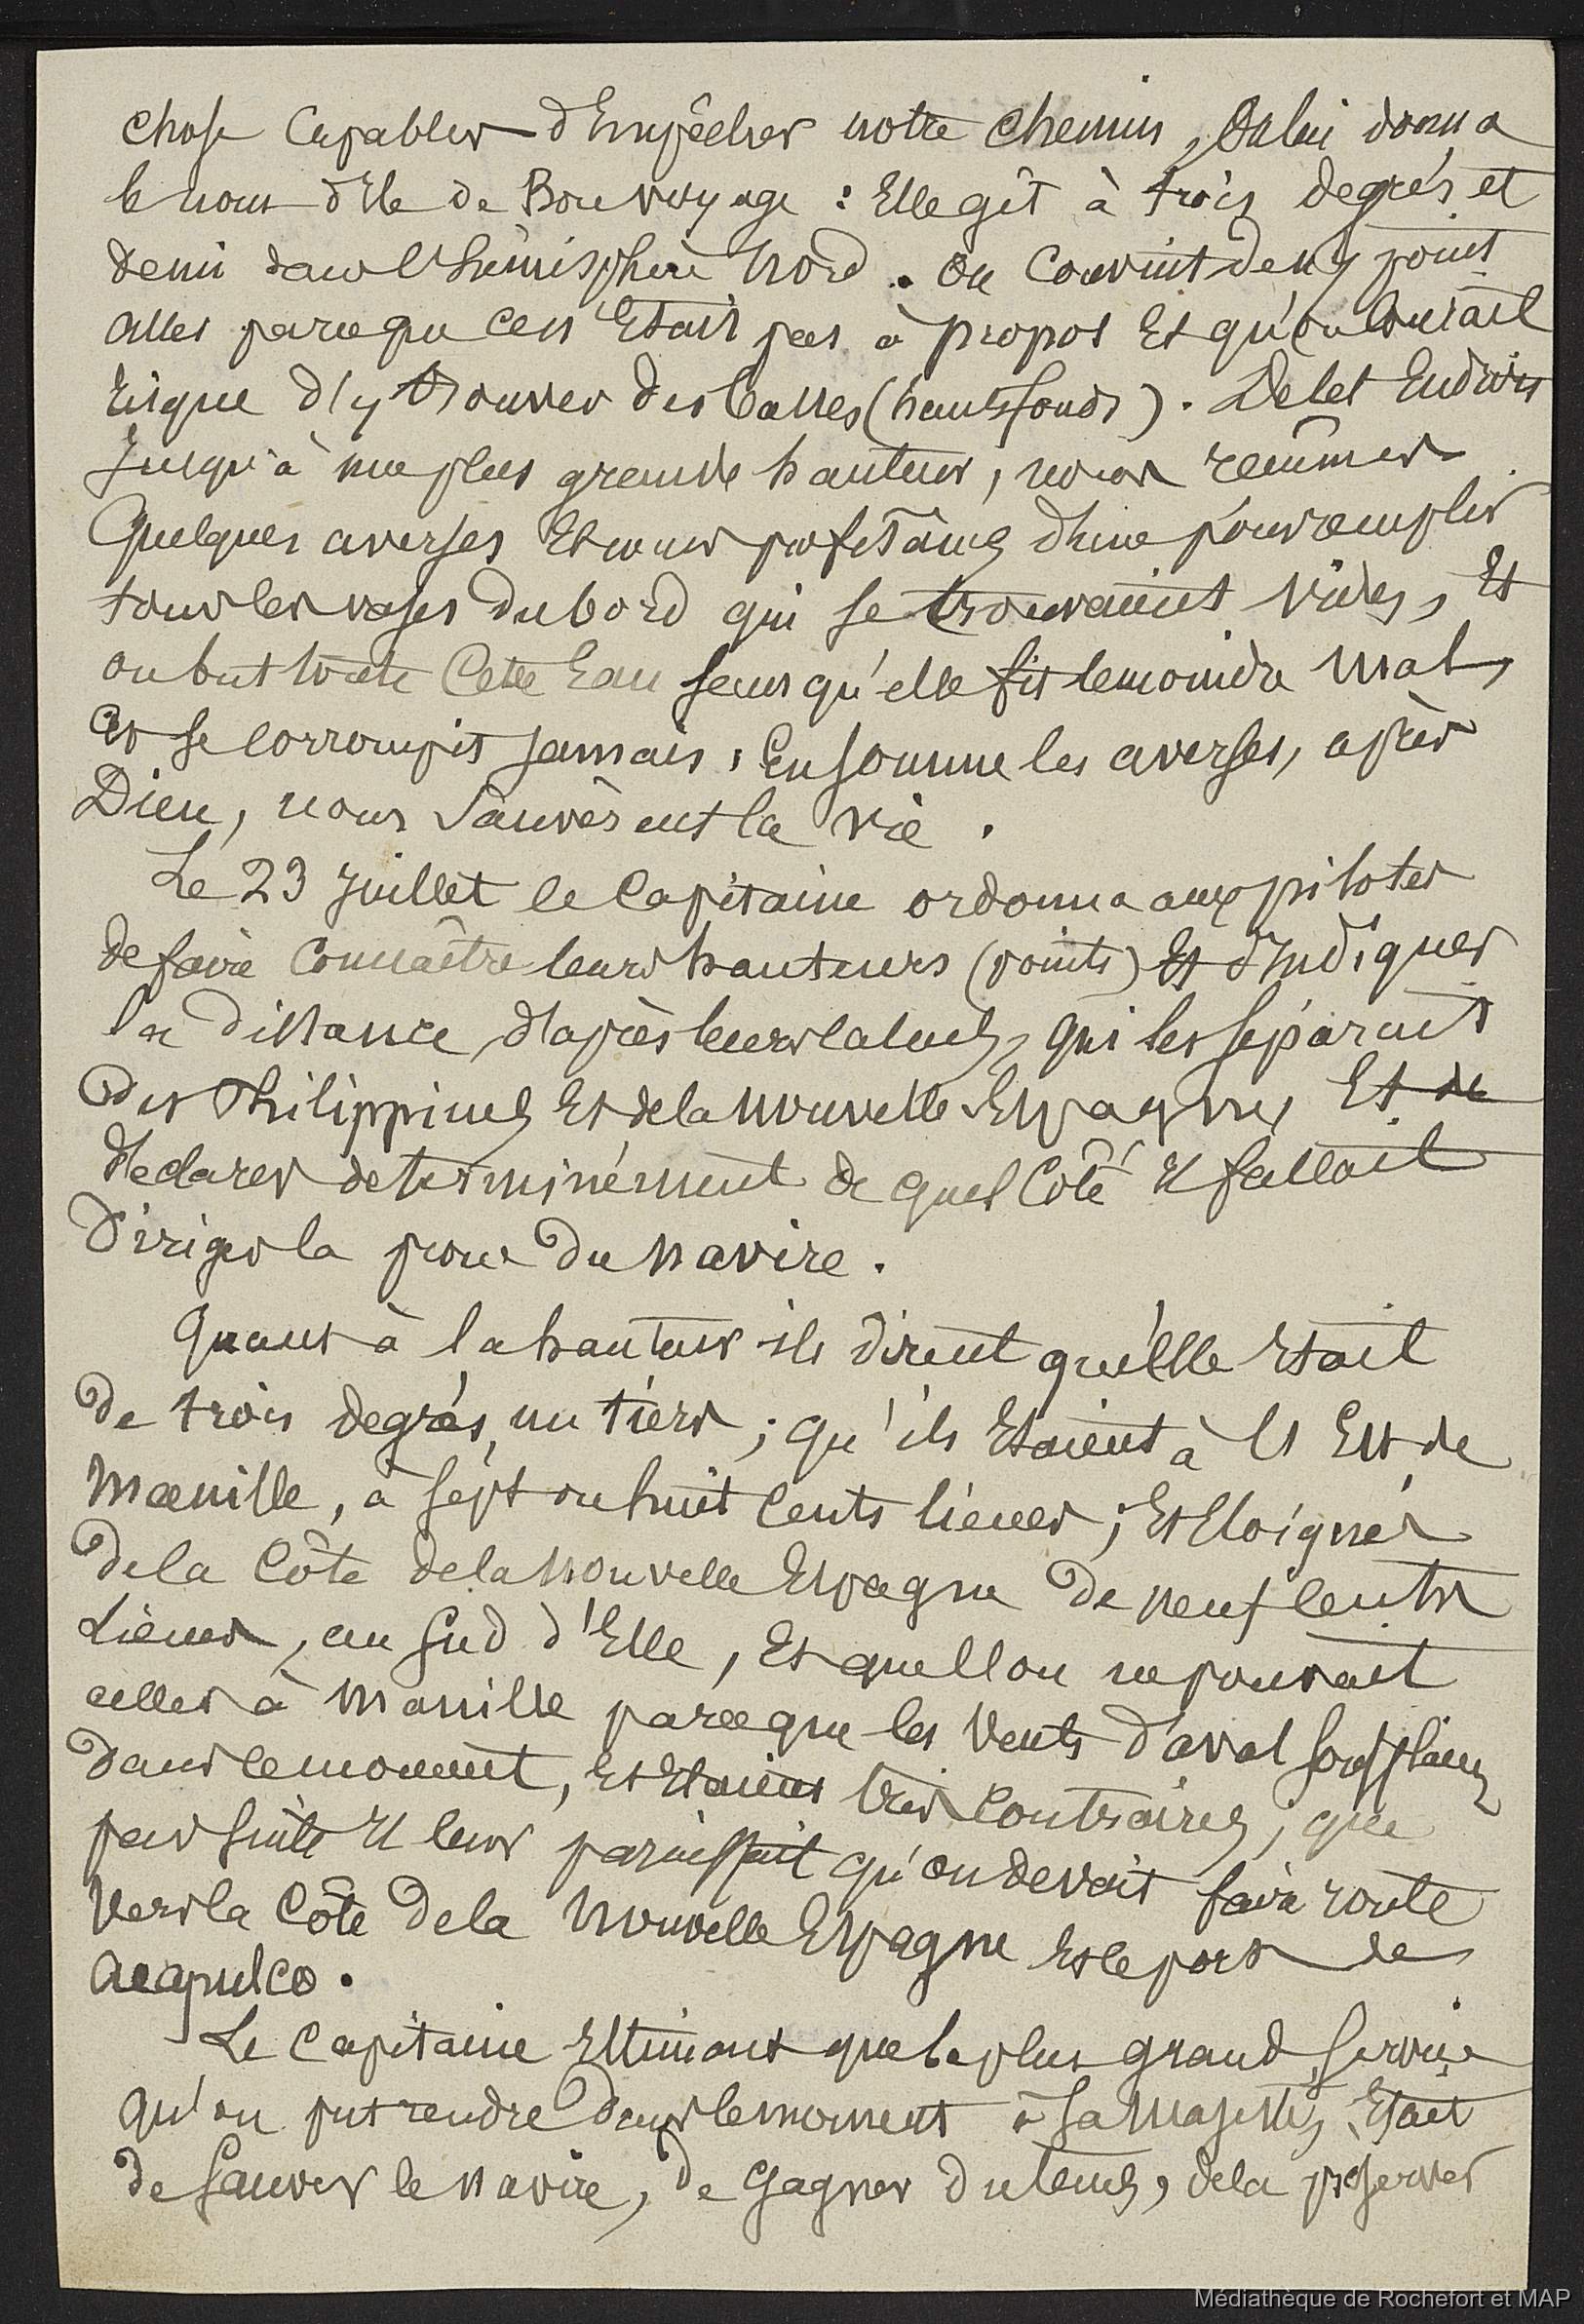 chose capables d'Empêcher notre chemin, On lui donna
le nom d'Ile de Bon voyage : Elle gît à trois degrés et
demi dans l'hémisphère Nord. On convint de n'y point
aller parceque ce n'Etait pas à propos Et qu'on courait
risque d'y trouver des basses (hauts fonds). De cet Endroit
Jusqu'à une plus grande hauteur, nous reçûmes
Quelques averses Et nous profitâmes d'une pour remplir
tous les vases du bord qui se trouvaient vides, Et
on but toute Cette Eau sans qu'elle fit le moindre mal,
et se corrompit jamais ; En somme les averses, après
Dieu, nous Sauvèrent la vie.
Le 23 Juillet le Capitaine ordonna aux pilotes
de faire Connaître leurs hauteurs (points) Et d'Indiquer
la distance, d'après leurs calculs, qui les séparait
des Philippines Et de la Nouvelle Espagne, Et de
déclarer déterminément de quel Côté Il fallait
Diriger la proue du Navire.
Quant à la hauteur ils dirent qu'Elle Etait
De trois degrés, un tiers ; qu'ils Etaient à l'Est de
Manille, à sept ou huit Cents lieues ; Et Eloignés
De la Côte de la Nouvelle Espagne De neuf cents
Lieues, au Sud d'Elle, Et que l'on ne pouvait
aller à Manille parceque les Vents d'aval soufflaient
Dans le moment, Et Etaient très Contraires ; que
par suite Il leur paraissait qu'on devait faire route
Vers la Côte De la Nouvelle Espagne Et le port de
Acapulco.
Le Capitaine Estimant que le plus grand Service
qu'on put rendre Dans le moment à Sa Majesté, Etait
de Sauver le navire, De Gagner Du temps, de la préserver
Médiathèque de Rochefort et MAP